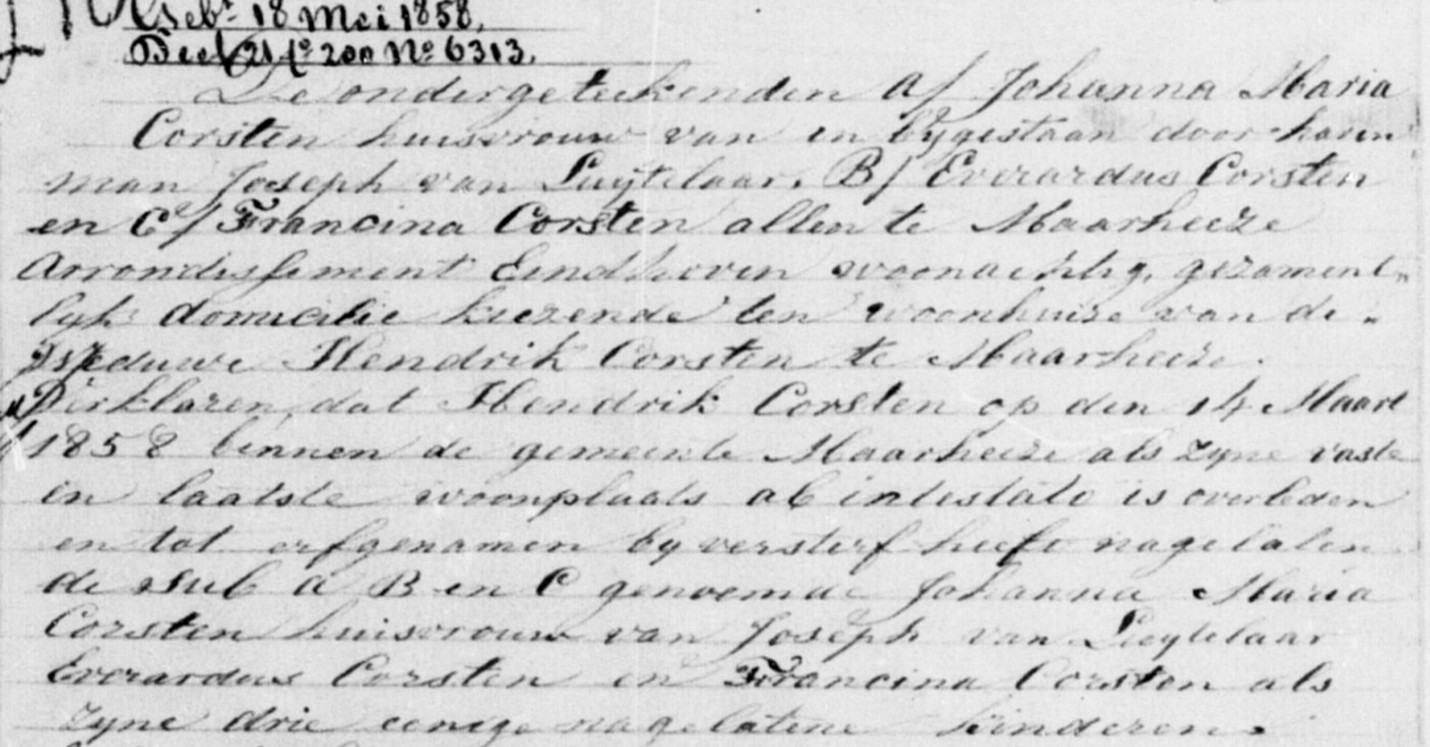 Gebr 18 Mei 1858.
Deel 21 fo 200 No 6313.
De ondergeteekenden A/ Johanna Maria
Corsten huisvrouw van en bygestaan door haren
man Joseph van Luytelaar, B/ Everardus Corsten
en C/ Francina Corsten allen te Maarheeze
Arrondissement Eindhoven woonachtig, gezament„
lyk domicilie kiezende ten woonhuize van de„
Weduwe Hendrik Corsten te Maarheeze.
Verklaren, dat Hendrik Corsten op den 14 Maart
1858 binnen de gemeente Maarheeze als zyne vaste
en laatste woonplaats ab intestato is overleden
en tot erfgenamen by versterf heeft nagelaten
de sub A B en C genoemde Johanna Maria
Corsten huisvrouw van Joseph van Luytelaar
Everardus Corsten en Francina Corsten als
zyne drie eenige nagelatene kinderen.